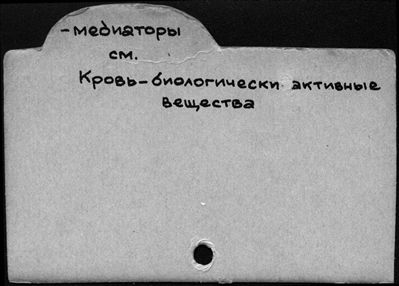 -медиаторы
см.
Кровь-биологически активные
вещества